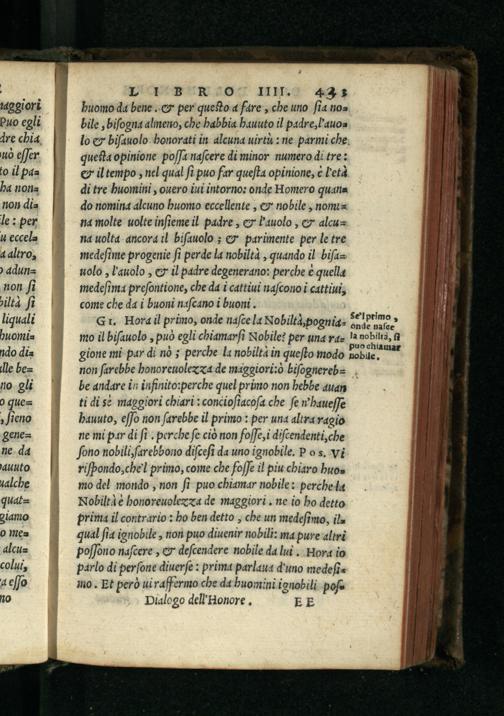 LIBRO IIII. 433
huomo da bene. & per questo a fare, che uno sia no=
bile, bisogna almeno, che habbia hauuto il padre, l'auo=
lo & bisauolo honorati in alcuna uirtù: ne parmi che
questa opinione possa nascere di minor numero di tre:
& il tempo, nel qual si puo far questa opinione, è l'età
di tre huomini, ouero iui intorno: onde Homero quan=
do nomina alcuno huomo eccellente, & nobile, nomi=
na molte uolte insieme il padre, & l'auolo, & alcu=
na uolta ancora il bisauolo; & parimente per le tre
medesime progenie si perde la nobiltà, quando il bisa=
uolo, l'auolo, & il padre degenerano: perche è quella
medesima presontione, che da i cattiui nascono i cattiui,
come che da i buoni nascano i buoni.
GI. Hora il primo, onde nasce la Nobiltà, pognia=
mo il bisauolo, può egli chiamarsi Nobile? per una ra=
gione mi par di nò; perche la nobiltà in questo modo
non sarebbe honoreuolezza de maggiori: ò bisognereb=
be andare in infinito: perche quel primo non hebbe auan
ti di sè maggiori chiari: conciosiacosa che se n'hauesse
hauuto, esso non sarebbe il primo: per una altra ragio
ne mi par di si. perche se ciò non fosse, i discendenti, che
sono nobili, sarebbono discesi da uno ignobile. Pos. Vi
rispondo, che'l primo, come che fosse il piu chiaro huo=
mo del mondo, non si puo chiamar nobile: perche la
Nobiltà è honoreuolezza de maggiori. ne io ho detto
prima il contrario: ho ben detto, che un medesimo, il=
qual sia ignobile, non puo diuenir nobili: ma pure altri
possono nascere, & descendere nobile da lui. Hora io
parlo di persone diuerse: prima parlaua d'uno medesi=
mo. Et però ui raffermo che da huomini ignobili pos=
Dialogo dell'Honore. EE
Se'l primo,
onde nasce
la nobiltà, si
puo chiamar
nobile.
maggiori
Puo egli
dre chia
può esser
to il pa=
ha non=
non di=
ile: per
iu eccel=
a altro,
o adun=
non si
biltà si
liquali
huomi=
ndo di=
lle be=
no gli
o que=
, sieno
gene=
ne da
hauuto
ualche
quat=
giamo
o me=
alcu=
colui,
ra esso
no